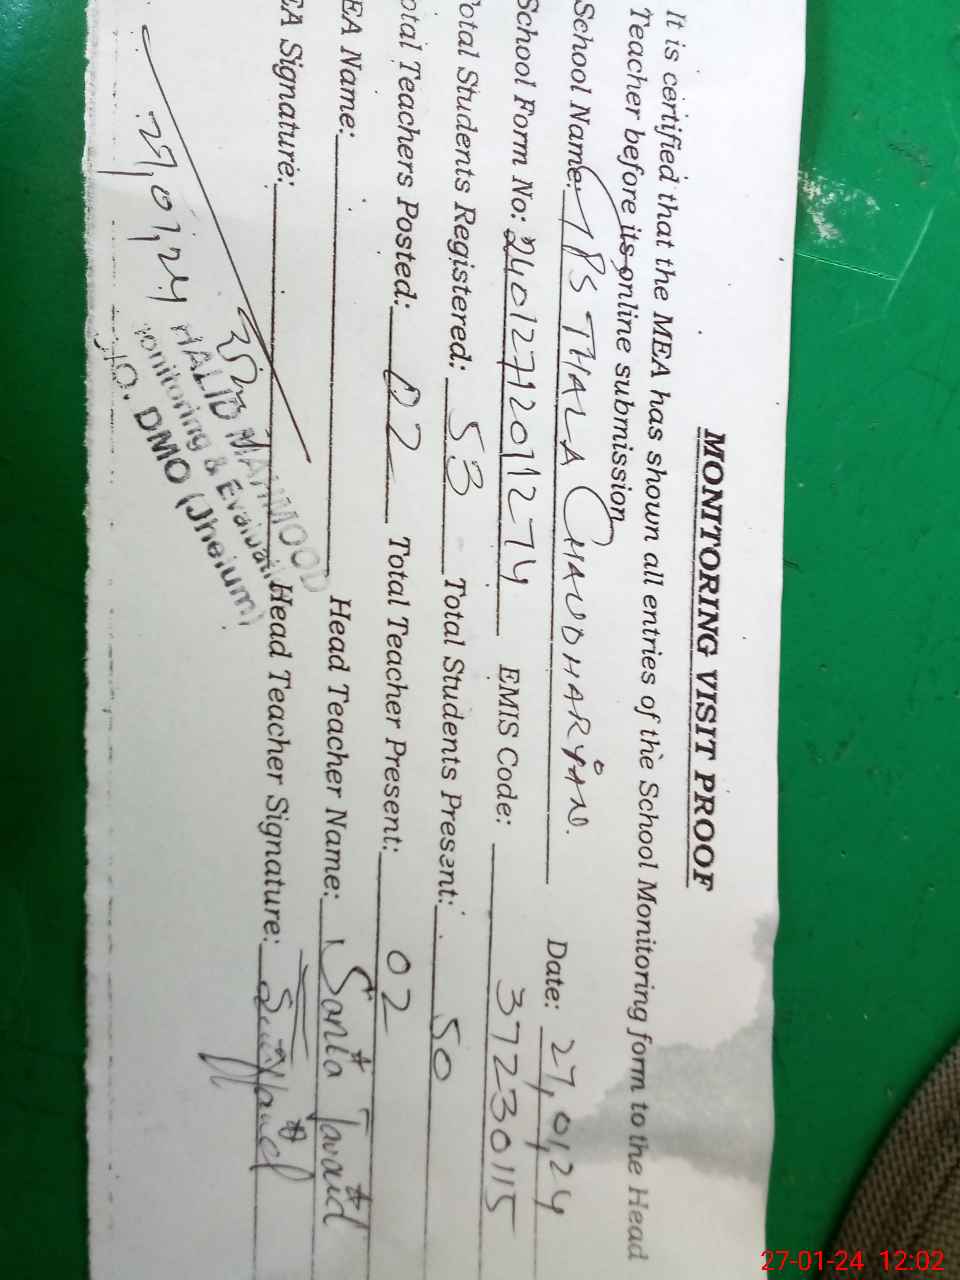 MONITORING VISIT PROOF
It is certified that the MEA has shown all entries of the School Monitoring form to the Head
Teacher before its online submission
School Name: GPS THALA CHAUDHARYAN. Date: 27,01,24
School Form No: 24012712011274 EMIS Code: 37230115
otal Students Registered: 53 Total Students Present: 50
otal Teachers Posted: 02 Total Teacher Present: 02
EA Name: Head Teacher Name: Sonia Javaid
EA Signature: Head Teacher Signature:
27,01,24
HALID MAHMOOD
onitoring & Evaluati
O. DMO (Jhelum)
27-01-24 12:02